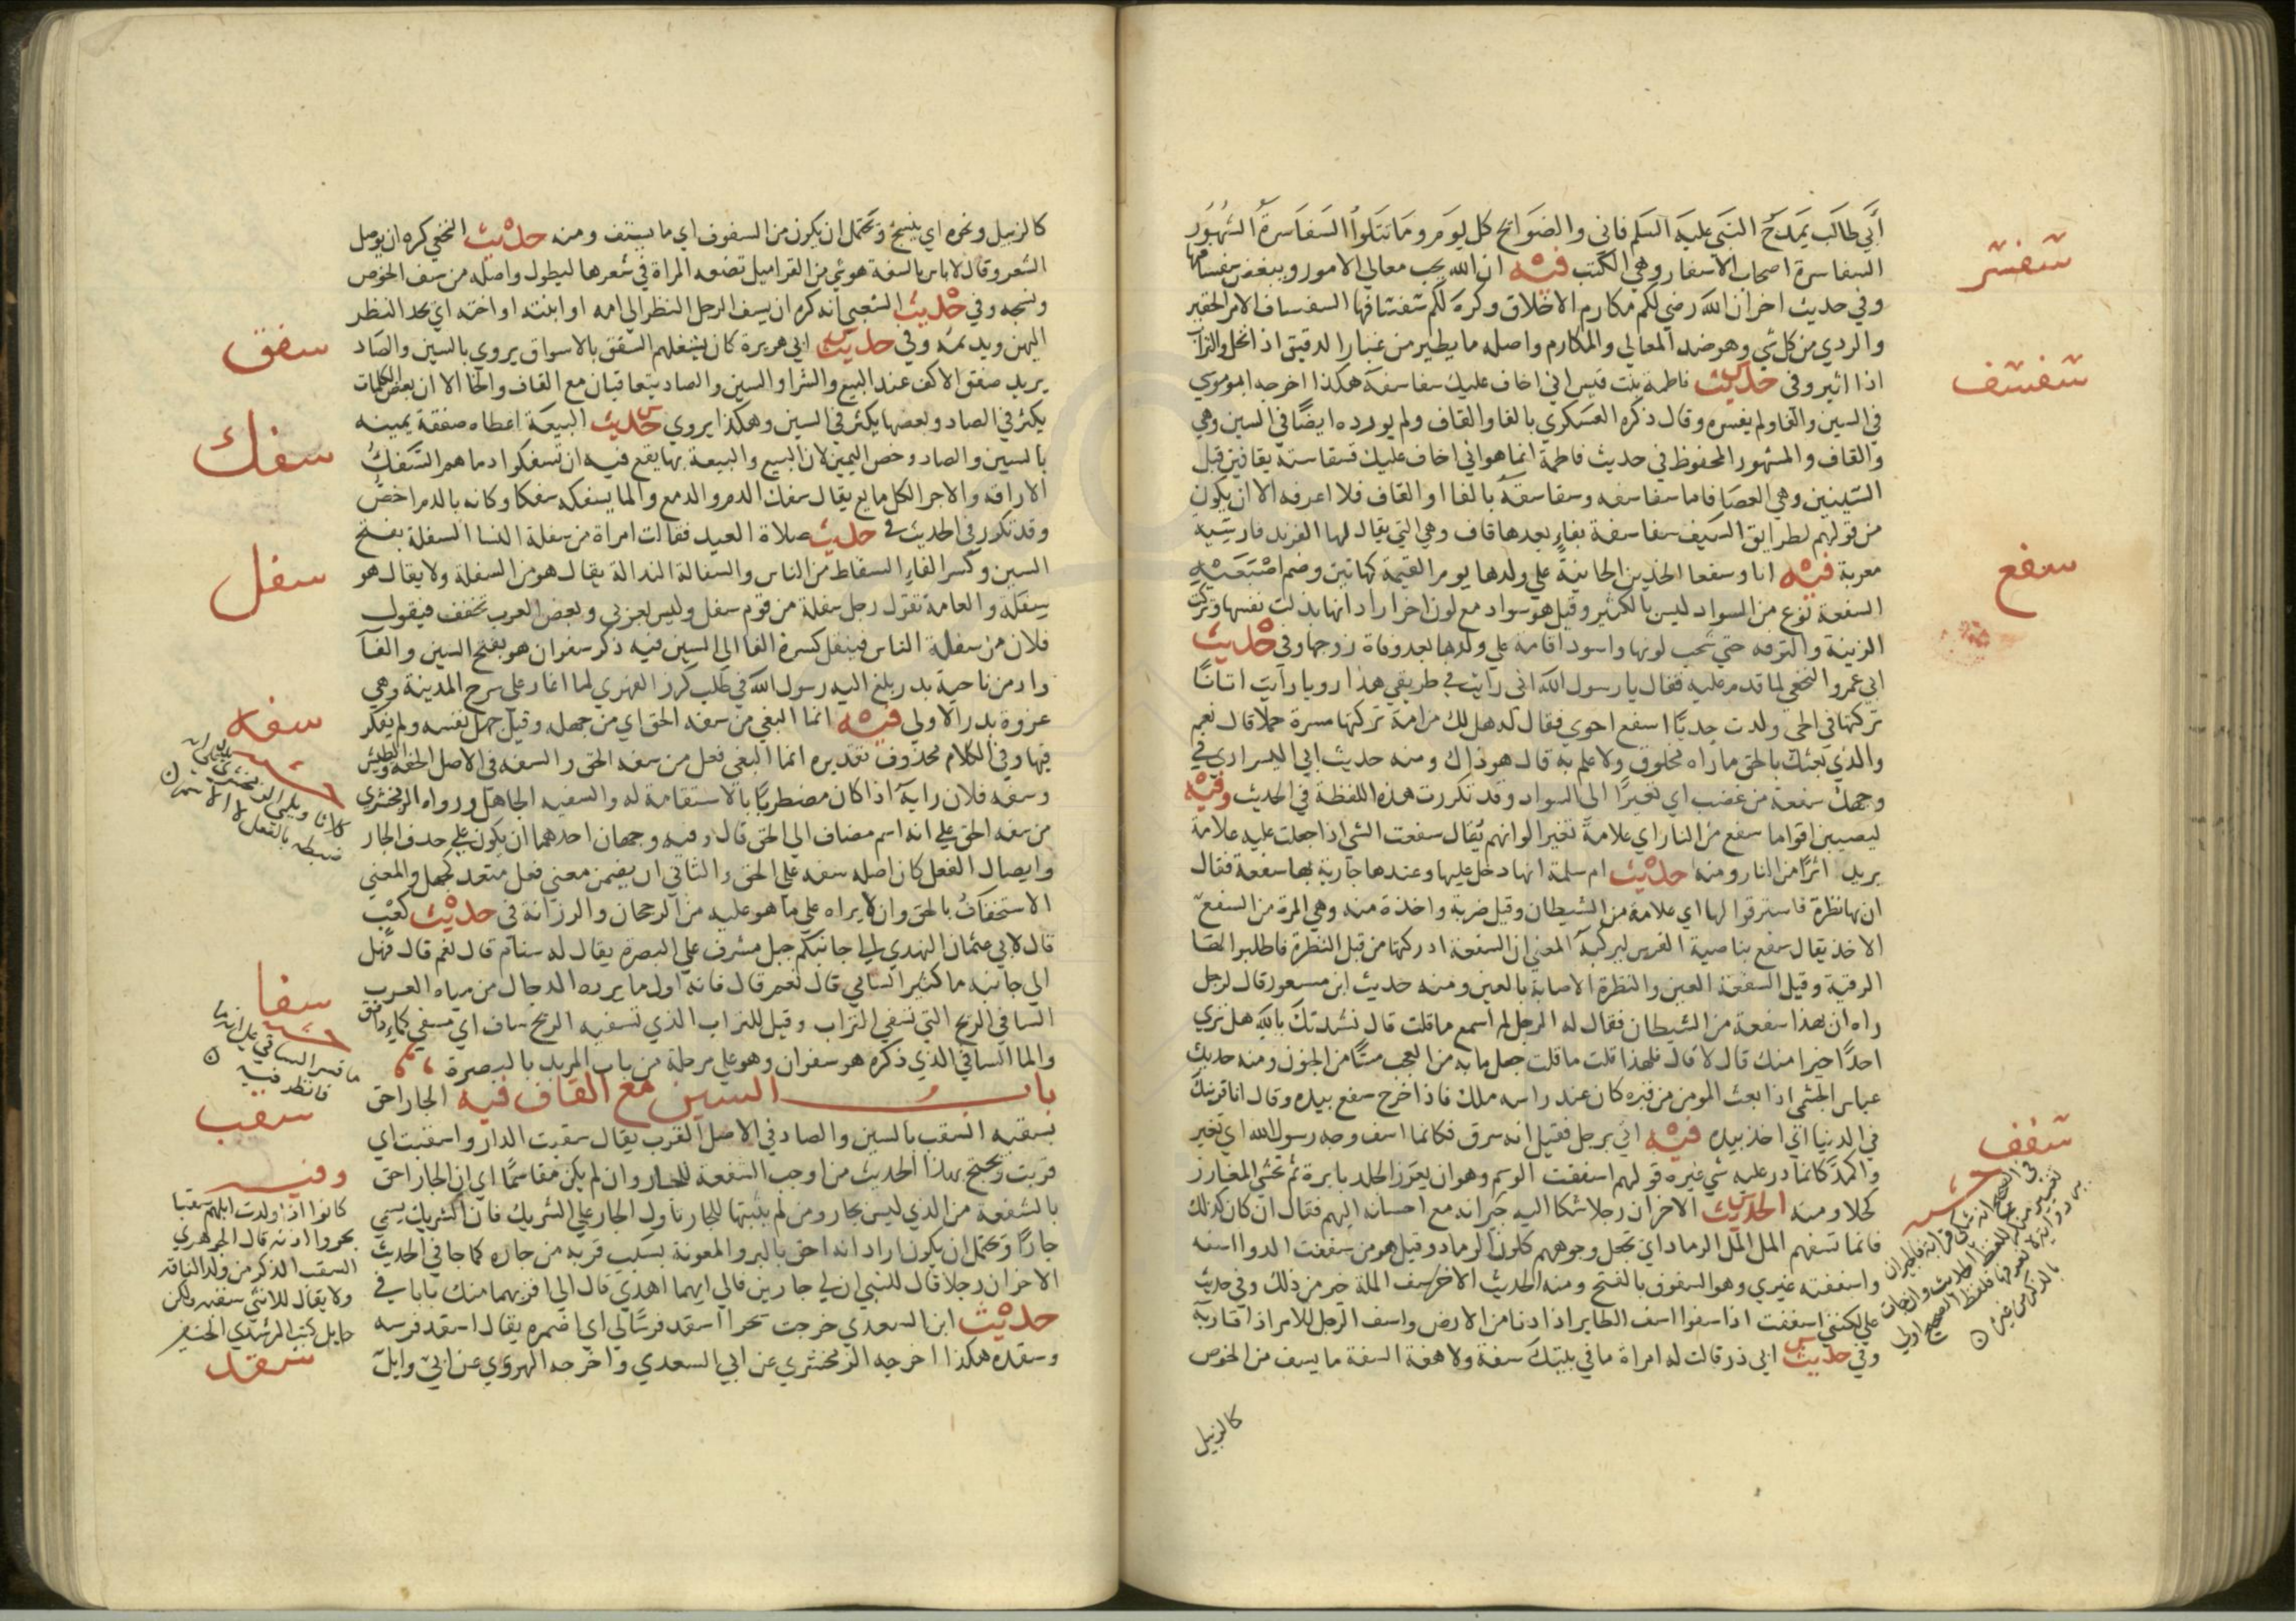 أبي طالب يمدح النبي عليه السلم فاني والضوابح كل يوم وما تتلوا السفاسرة الشهور
السفاسرة اصحاب الاسفار وهي الكتب فيه ان الله يحب معالي الامور ويبغض سفسافها
وفي حديث اخر ان الله رضي لكم مكارم الاخلاق وكره لكم سفسافها السفساف الامر الحقير
والردي من كل شي وهو ضد المعالي والمكارم واصله ما يطير من غبار الدقيق اذا نخل والتراب
اذا اثير وفي حديث فاطمة بنت قيس اني اخاف عليك سفاسفه هكذا اخرجه ابو موسي
في السين والفا ولم يفسره وقال ذكره العسكري بالفا والقاف ولم يورده ايضًا في السين وهي
والقاف والمشهور المحفوظ في حديث فاطمة انما هو اني اخاف عليك قسقاسته بقافين قبل
السينين وهي العصا فاما سفاسفه وسقاسقه بالفا او القاف فلا اعرفه الا ان يكون
من قولهم لطرايق السيف سفاسقة بفاءٍ بعدها قاف وهي التي يقال لها الفرند فارسية
معربة فيه انا وسفعا الخدين الحانيةُ علي ولدها يوم القيمة كهاتين وضم اصبعيه
السفعة نوع من السواد ليس بالكثير وقيل هو سواد مع لون اخر اراد انها بذلت نفسها وتركت
الزينة والترفه حتي شحب لونها واسود اقامة علي ولدها بعد وفاة زوجها وفي حديث
ابي عمرو النخعي لما قدم عليه فقال يا رسول الله اني رايت في طريقي هذا رويا رايت اتانًا
تركتها في الحي ولدت جديًا اسفع احوي فقال له هل لك من امة تركتها مسرة حملا قال نعم
والذي بعثك بالحق ما راه مخلوق ولا علم به قال هو ذاك ومنه حديث ابي اليسر اري في
وجهك سفعة من غضب اي تغيرًا الي السواد وقد تكررت هذه اللفظة في الحديث وفيه
ليصيبن اقواما سفع من النار اي علامة تغير الوانهم يقال سفعت الشي اذا جعلت عليه علامة
يريد اثرًا من النار ومنه حديث ام سلمة انها دخل عليها وعندها جارية بها سفعة فقال
ان بها نظرة فاسترقوا لها اي علامة من الشيطان وقيل ضربة واحدة منه وهي المرة من السفع
الاخذ يقال سفع بناصية الفرس ليركبه المعني ان السفعة ادركتها من قبل النظرة فاطلبوا لها
الرقية وقيل السفعة العين والنظرة الاصابة بالعين ومنه حديث ابن مسعود قال لرجل
راه ان بهذا سفعة من الشيطان فقال له الرجل لم اسمع ما قلت قال نشدتك بالله هل تري
احدًا خيرا منك قال لا قال فلهذا قلت ما قلت جعل ما به من العجب مسًّا من الجنون ومنه حديث
عباس الجشمي اذا بعث المومن من قبره كان عند راسه ملك فاذا خرج سفع بيده وقال انا قرينك
في الدنيا اي اخذ بيده فيه اتي برجل فقيل انه سرق فكانما اسف وجه رسول الله اي تغير
واكمدّ كانما ذر عليه شي غيره قولهم اسففت الوسم وهو ان يغرز الجلد بابرة ثم تحشي المغارز
كحلا ومنه الحديث الاخر ان رجلا شكا اليه جيرانه مع احسانه اليهم فقال ان كان كذلك
فانما تسفهم المل المل الرماد اي تجعل وجوههم كلون الرماد وقيل هو من سففت الدوا اسفه
واسففته غيري وهو السفوف بالفتح ومنه الحديث الاخر سف الملة خير من ذلك وفي حديث
علي لكنني اسففت اذ اسفوا اسف الطاير اذا دنا من الارض واسف الرجل للامر اذا قاربه
وفي حديث ابي ذر قالت له امراة ما في بيتك سفة ولا هفة السفة ما يسف من الخوص
كالزبيل
سفسر
سفسف
سفع
سفف
كالزبيل ونحوه اي ينسج ويحتمل ان يكون من السفوف اي ما يستف ومنه حديث النخعي كره ان يوصل
الشعر وقال لا باس بالسفة هو شي من القراميل تضعه المراة في شعرها ليطول واصله من سف الخوص
ونسجه وفي حديث الشعبي انه كره ان يسف الرجل النظر الي امه او ابنته او اخته اي يحد النظر
اليهن ويديمه وفي حديث ابي هريرة كان يشغلهم السفق بالاسواق يروي بالسين والصاد
يريد صفق الاكف عند البيع والشرا والسين والصاد يتعاقبان مع القاف والخا الا ان بعض الكلمات
يكثر في الصاد وبعضها يكثر في السين وهكذا يروي حديث البيعة اعطاه صفقة يمينه
بالسين والصاد وخص اليمين لان البيع والبيعة بها يقع فيه ان تسفكوا دماهم السَّفكُ
الاراقة والاجرا لكل مايع يقال سفك الدم والدمع والما يسفكه سفكا وكانه بالدم اخصُّ
وقد تكرر في الحديث في حديث صلاة العيد فقالت امراة من سفلة النسا السفلة بفتح
السين وكسر الفاءِ السقاط من الناس والسفالة النذالة يقال هو من السفلة ولا يقال هو
سفلة والعامة تقول رجل سفلة من قوم سفل وليس بعربي وبعض العرب يخفف فيقول
فلان من سفلة الناس فينقل كسرة الفا الي السين فيه ذكر سفوان هو بفتح السين والفا
واد من ناحية بدر بلغ اليه رسول الله في طلب كرز الفهري لما اغار علي سرح المدينة وهي
غزوة بدر الاولي فيه انما البغي من سفه الحق اي من جهله وقيل جهل نفسه ولم يفكر
فيها وفي الكلام محذوف تقديره انما البغي فعل من سفه الحق والسفه في الاصل الخفه والطيش
وسفه فلان رايه اذا كان مضطربًا بالاستقامة له والسفيه الجاهل ورواه الزمخشري
من سفه الحق علي انه اسم مضاف الي الحق قال وفيه وجهان احدهما ان يكون علي حذف الجار
وايصال الفعل كان اصله سفه علي الحق والثاني ان يضمن معني فعل متعد كجهل والمعني
الاستخفافُ بالحق وان لا يراه علي ما هو عليه من الرجحان والرزانة في حديث كعب
قال لابي عثمان النهدي الي جانبكم جبل مشرف علي البصرة يقال له سنام قال نعم قال فهل
الي جانبه ما كثير السافي قال نعم قال فانه اول ما يرده الدجال من مياه العرب
السافي الريح التي تسفي التراب وقيل للتراب الذي تسفيه الريح ساف اي مسفي كماءٍ دافق
والما السافي الذي ذكره هو سفوان وهو علي مرحلة من باب المربد بالبصرة
باب السين مع القاف فيه الجار احق
بسقبه السقب بالسين والصاد في الاصل القرب يقال سقبت الدار واسقبت اي
قربت ويحتج بهذا الحديث من اوجب الشفعة للجار وان لم يكن مقاسمًا اي ان الجار احق
بالشفعة من الذي ليس بجار ومن لم يثبتها للجار تاول الجار علي الشريك فان الشريك يسمي
جارًا ويحتمل ان يكون اراد انه احق بالبر والمعونة بسبب قربه من جاره كما جا في الحديث
الاخر ان رجلا قال للنبي ان لي جارين فالي ايهما اهدي قال الي اقربهما منك بابا في
حديث ابن السعدي خرجت سحرا اسقد فرسًا لي اي اضمره يقال اسقد فرسه
وسقده هكذا اخرجه الزمخشري عن ابي السعدي واخرجه الهروي عن ابي وايل
سفق
سفك
سفل
سفه
سفا
سقب
وفيه
كانوا اذا ولدت ابلهم سقبا
بحروا اذنه قال الجوهري
السقب الذكر من ولد الناقة
ولا يقال للانثي سقبه ولكن
حايل
سقد